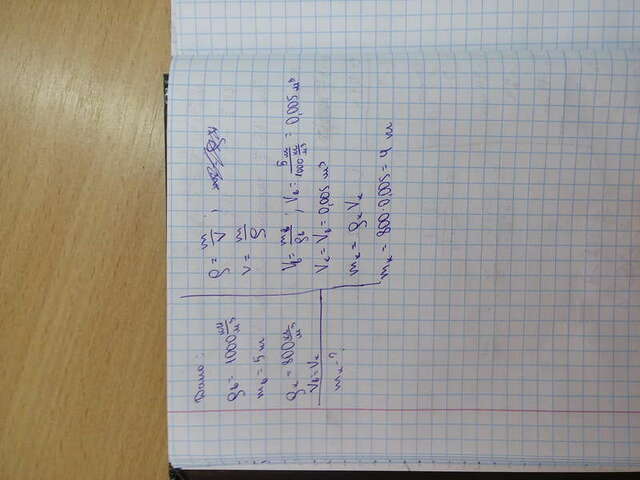 Дано:
ρв = 1000 кг/м³
mв = 5 кг
ρк = 800 кг/м³
Vв = Vк
mк - ?
ρ = m/V ;
V = m/ρ
Vв = mв/ρв ; Vв = 5 кг / 1000 кг/м³ = 0,005 м³
Vк = Vв = 0,005 м³
mк = ρк Vк
mк = 800·0,005 = 4 кг